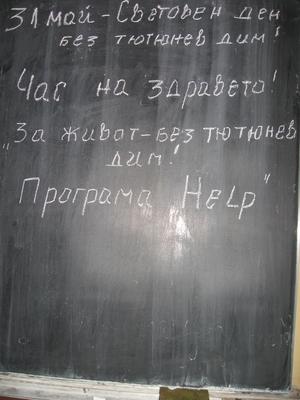 31 май - Световен ден
без тютюнев дим!
Час на здравето!
„За живот - без тютюнев
дим!
Програма Help"